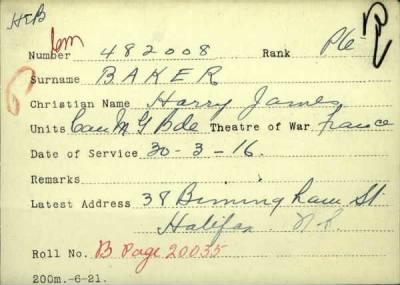 HB
6m
Number 482008 Rank Pte
Surname BAKER
Christian Name Harry James
Units Can M G Bde Theatre of War France
Date of Service 30-3-16.
Remarks
Latest Address 38 Birmingham St
Halifax N.S.
Roll No. B Page 20035
200m.-6-21.